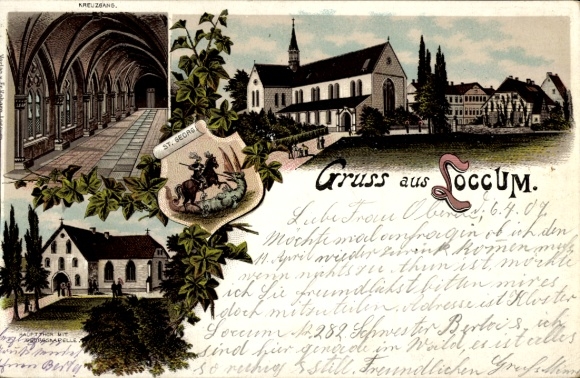 KREUZGANG.
ST. GEORG
Gruss aus Loccum.
Liebe Frau Ober 6.4.09
Möchte mal anfragen ob ich den
11. April wieder zurück komen muß
wenn nichts zu thun ist, möchte
ich Sie freundlichst bitten mir es
doch mitzuteilen. Adresse ist Kloster
Loccum 12282 Schwester Berta
sind hier gerade im Wald, es ist alles
so ruhig & still. Freundlichen Gruß
HAUPTTHOR MIT
GEORGSKAPELLE.